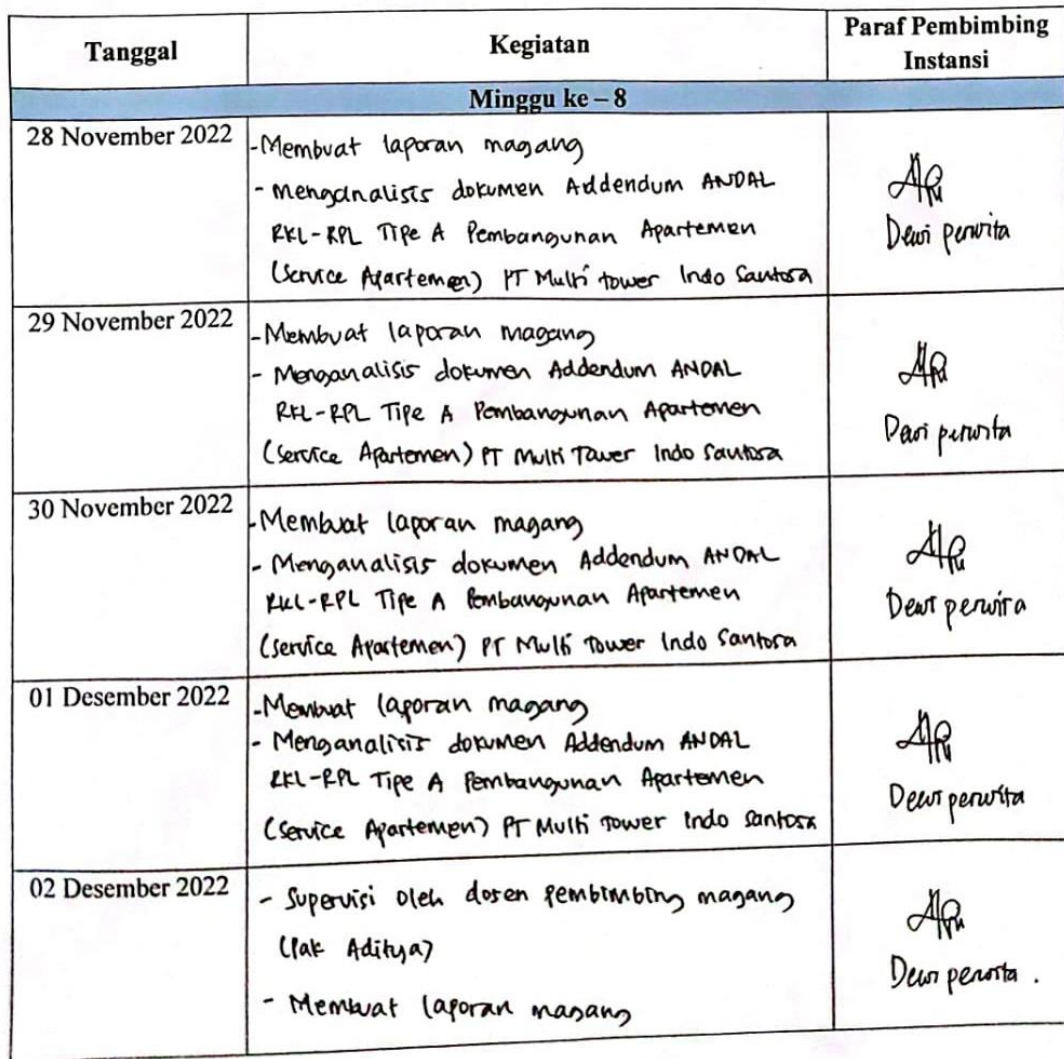 Tanggal
Kegiatan
Paraf Pembimbing
Instansi
Minggu ke – 8
28 November 2022
- Membuat laporan magang
- Menganalisis dokumen Addendum ANDAL
RKL-RPL Tipe A Pembangunan Apartemen
(Service Apartemen) PT Multi tower Indo Santosa
Dewi perwita
29 November 2022
- Membuat laporan magang
- Menganalisis dokumen Addendum ANDAL
RKL-RPL Tipe A Pembangunan Apartemen
(Service Apartemen) PT Multi Tower Indo Santosa
Dewi perwita
30 November 2022
- Membuat laporan magang
- Menganalisis dokumen Addendum ANDAL
RKL-RPL Tipe A Pembangunan Apartemen
(Service Apartemen) PT Multi Tower Indo Santosa
Dewi perwita
01 Desember 2022
- Membuat laporan magang
- Menganalisis dokumen Addendum ANDAL
RKL-RPL Tipe A Pembangunan Apartemen
(Service Apartemen) PT Multi Tower Indo Santosa
Dewi perwita
02 Desember 2022
- Supervisi oleh dosen pembimbing magang
(Pak Aditya)
- Membuat laporan magang
Dewi perwita .